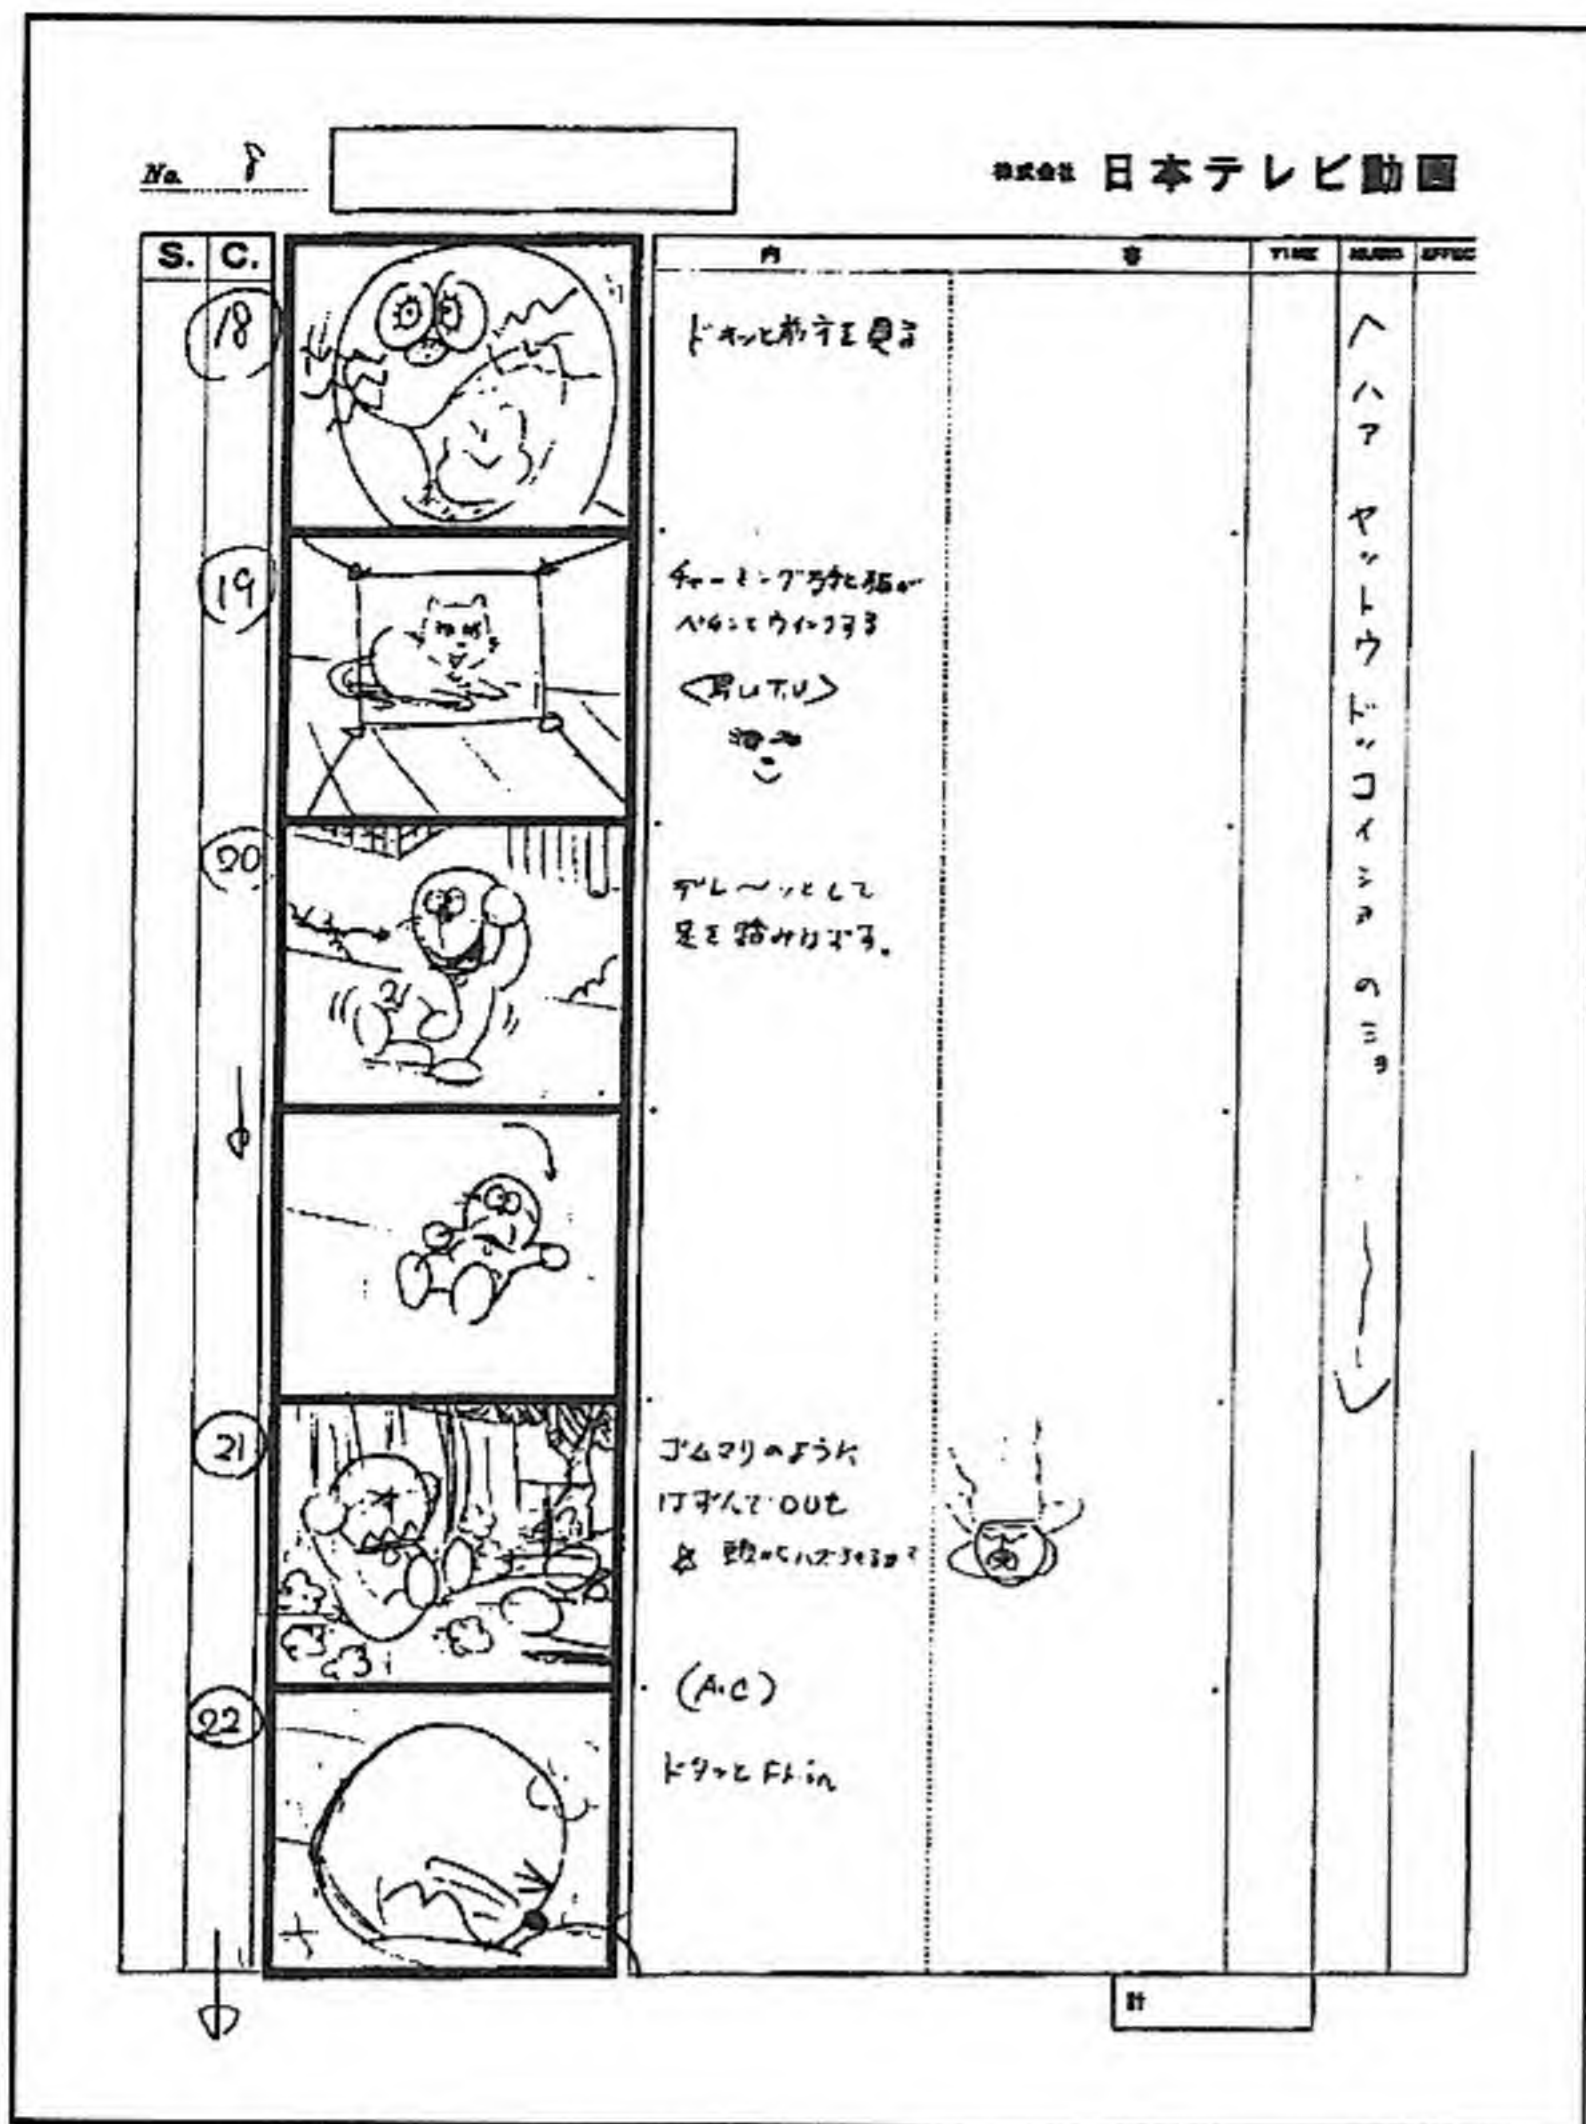 No. 8
株式会社 日本テレビ動画
S. C. 内 容 TIME MUSIC EFFEC
18
ドキッと前方を見る
19
チャーミングな
ウインクする
20
デレ〜ッとして
足を踏みはずす。
21
ゴムマリのように
はずんでOUT
22
(A.C)
ドタッとFr.in
ヘ ハア ヤットウ ドッコイショ のショ
計